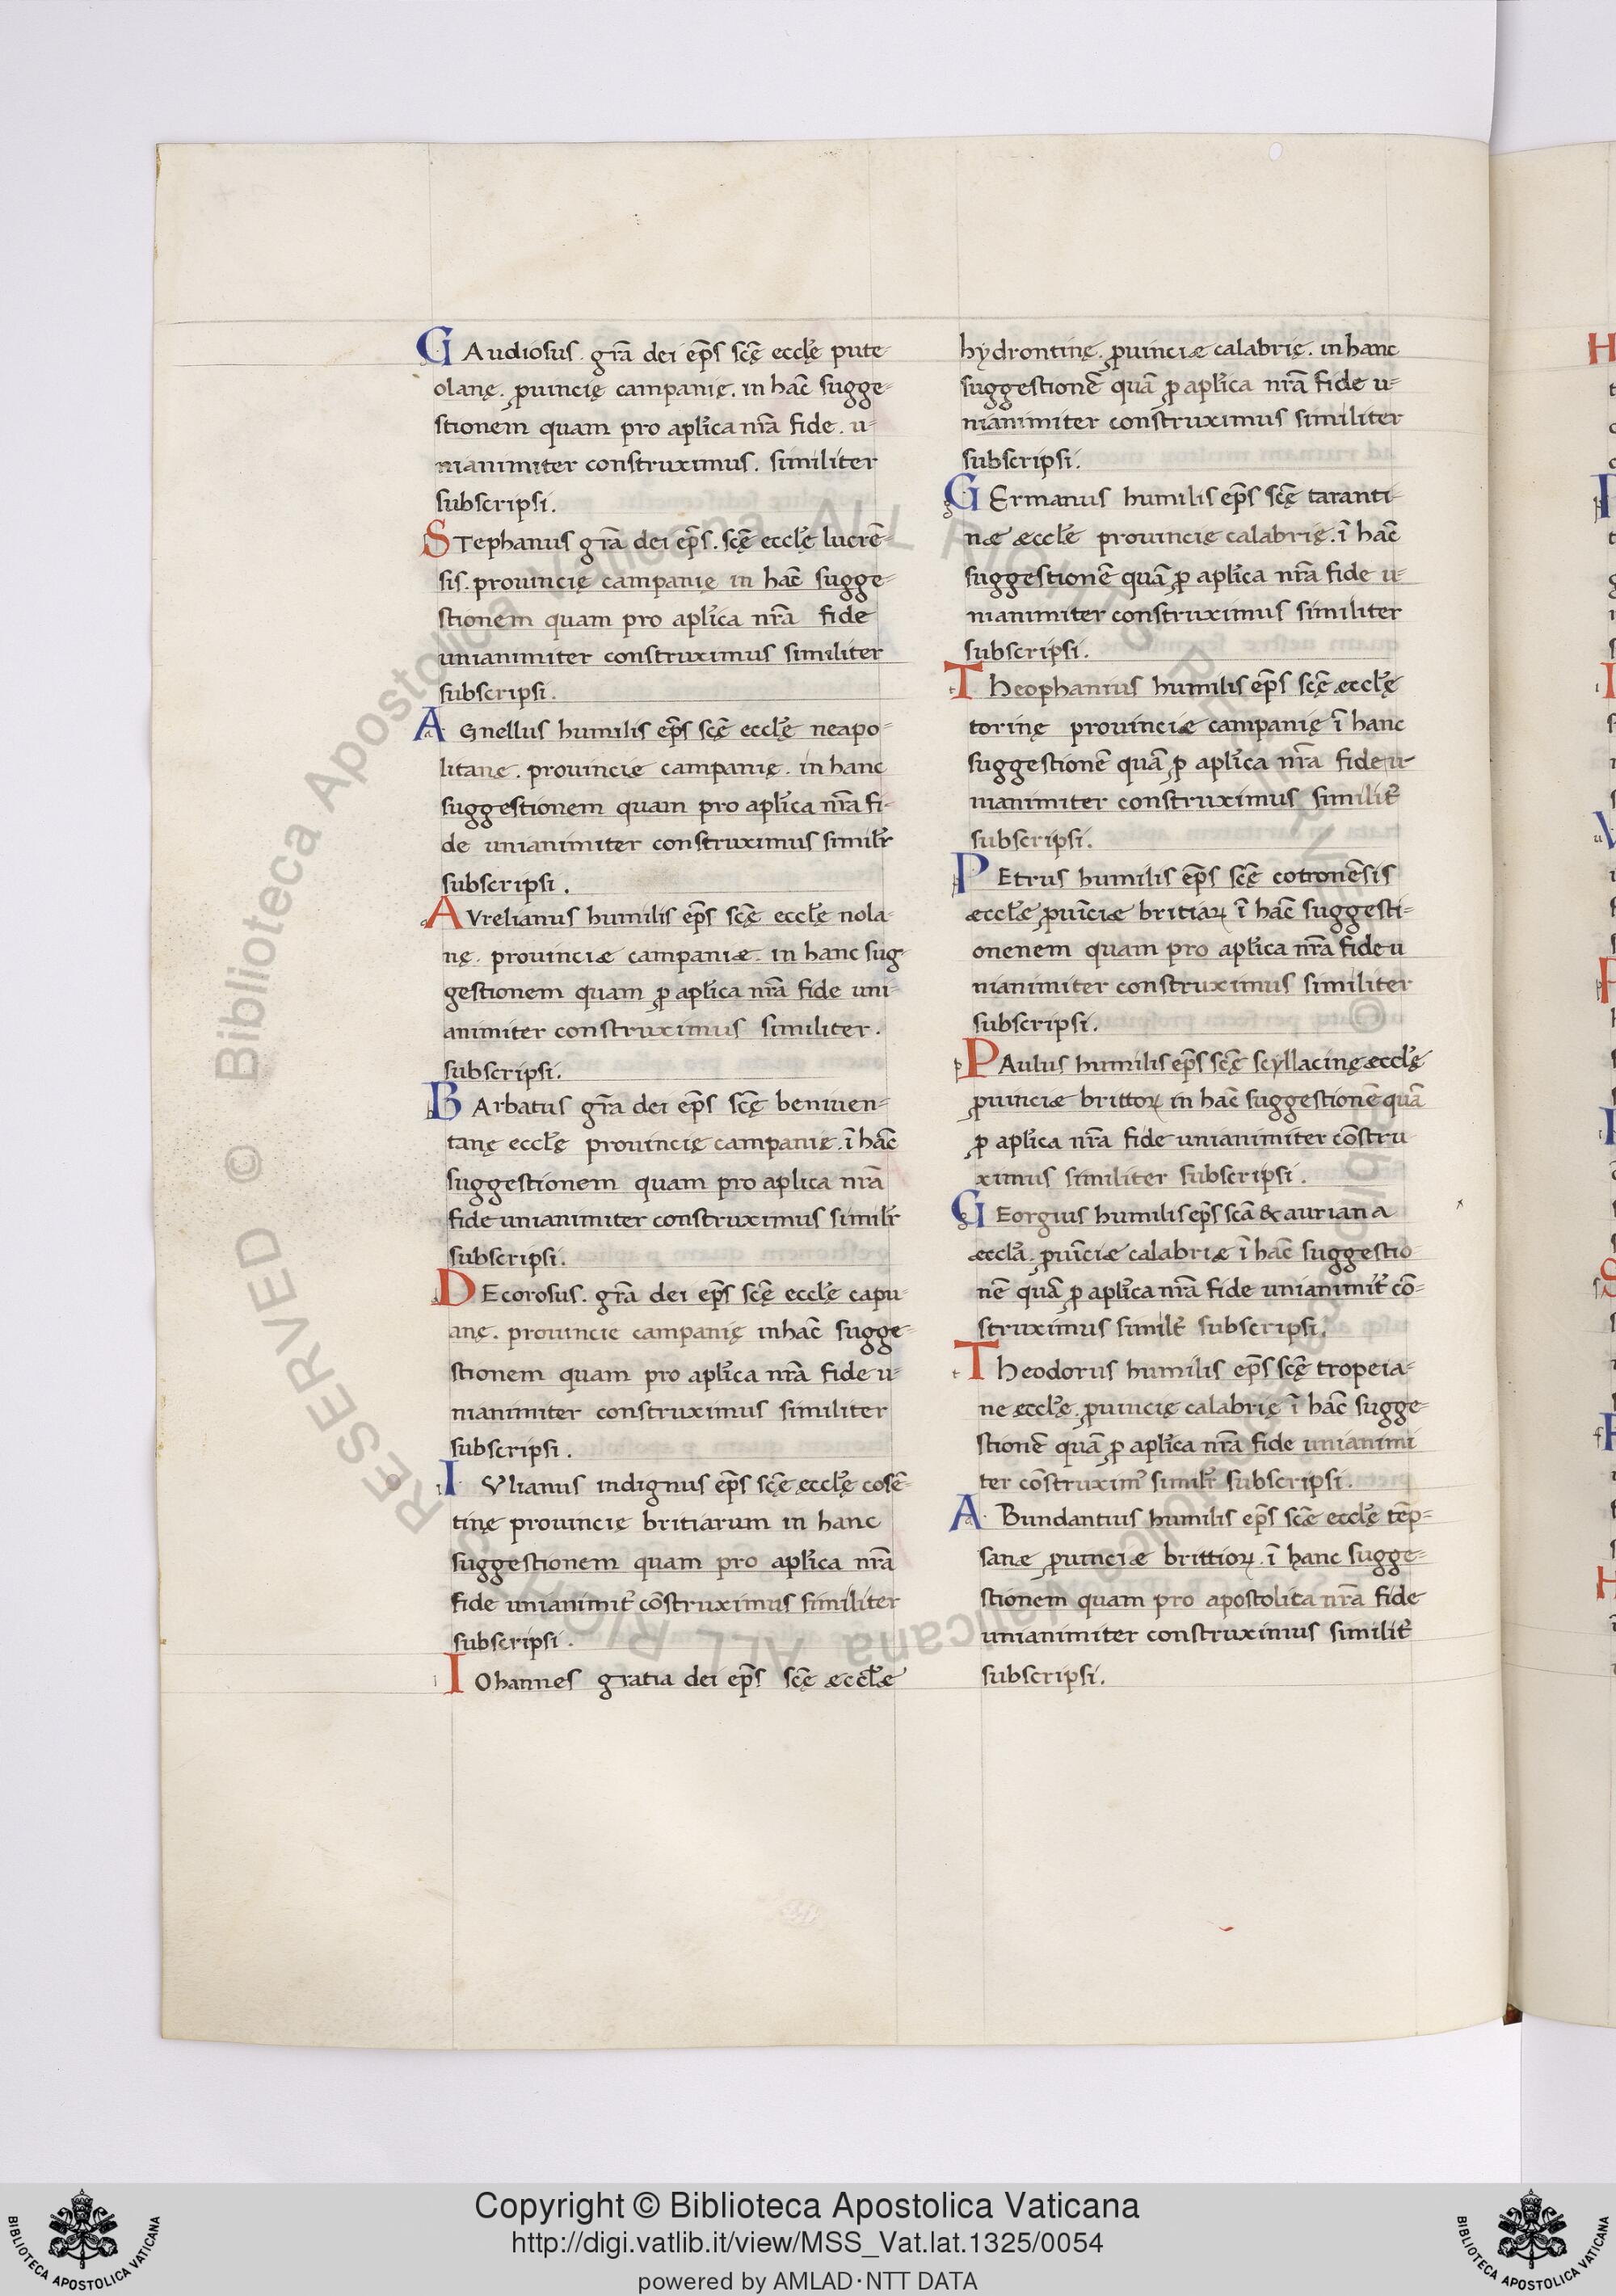 GAudiosus. gr̄a dei ep̄s sc̄ę eccl̄e pute
olanę. ꝓuincię campanię. in hac̄ sugge-
stionem quam pro apl̄ica nr̄a fide. u-
nianimiter construximus. similiter
subscripsi.
STephanus gr̄a dei ep̄s. sc̄ę eccl̄ę lucrē-
sis. prouincię campanię in hac̄ sugge-
stionem quam pro apl̄ica nr̄a fide
unianimiter construximus similiter
subscripsi.
AGnellus humilis ep̄s sc̄ę eccl̄ę neapo-
litane. prouincie campanię. in hanc
suggestionem quam pro apl̄ica nr̄a fi-
de unianimiter construximus simil̄r
subscripsi.
AVrelianus humilis ep̄s sc̄ę eccl̄e nola-
nę. prouinciæ campaniæ. in hanc sug-
gestionem quam ꝓ apl̄ica nr̄a fide uni-
animiter construximus similiter.
subscripsi.
BArbatus gr̄a dei ep̄s sc̄ę beniuen-
tanę eccl̄ę prouincię campanię. ī hac̄
suggestionem quam pro aplica nr̄a
fide unianimiter construximus simil̄r
subscripsi.
DEcorosus. gr̄a dei ep̄s sc̄ę eccl̄ę capu-
anę. prouincie campanię in hac̄ sugge-
stionem quam pro apl̄ica nr̄a fide u-
nianimiter construximus similiter
subscripsi.
IVlianus indignus ep̄s sc̄ę ęccl̄ę cosē-
tinę prouincię britiarum in hanc
suggestionem quam pro apl̄ica nr̄a
fide unianimit̄ cōstruximus similiter
subscripsi.
IOhannes gratia dei ep̄s sc̄ę æccl̄æ
hydrontinę. ꝓuinciæ calabrię. in hanc
suggestionē quā ꝓ apl̄ica nr̄a fide u-
nianimiter construximus similiter
subscripsi.
GErmanus humilis ep̄s sc̄ę taranti-
næ æccl̄e prouincię calabrię. ī hac̄
suggestionē quā ꝓ apl̄ica nr̄a fide u-
nianimiter construximus similiter
subscripsi.
Theophanius humilis ep̄s sc̄ę æccl̄ę
torinę prouinciæ campanię ī hanc
suggestionē quā ꝓ apl̄ica nr̄a fide u-
nianimiter construximus similit̄
subscripsi.
PEtrus humilis ep̄s sc̄ę cotronēsis
æccl̄æ ꝓuīciæ britiaꝝ ī hac̄ suggesti-
onenem quam pro apl̄ica nr̄a fide u
nianimiter construximus similiter
subscripsi.
PAulus humilis ep̄s sc̄ę scyllacinę æccl̄ę
ꝓuinciæ brittoꝝ in hac̄ suggestionē quā
ꝓ apl̄ica nr̄a fide unianimiter cōstru
ximus similiter subscripsi.
GEorgius humilis ep̄s sc̄a & auriana
æccl̄a. ꝓuīciæ calabriæ ī hac̄ suggestio
nē quā ꝓ apl̄ica nr̄a fide unianimit̄ cō-
struximus similt̄ subscripsi.
Theodorus humilis ep̄s sc̄ę tropeia-
ne ęccl̄ę. ꝓuincię calabrię ī hac̄ sugge-
stionē quā ꝓ apl̄ica nr̄a fide unianimi
ter cōstruxim᾽ simil̄r subscripsi.
ABundantius humilis ep̄s sc̄æ eccl̄ę tēp-
sanæ ꝓuinciæ brittioꝝ. ī hanc sugge-
stionem quam pro apostolica nr̄a fide
unianimiter construximus similit̄
subscripsi.
Copyright © Biblioteca Apostolica Vaticana
http://digi.vatlib.it/view/MSS_Vat.lat.1325/0054
powered by AMLAD·NTT DATA